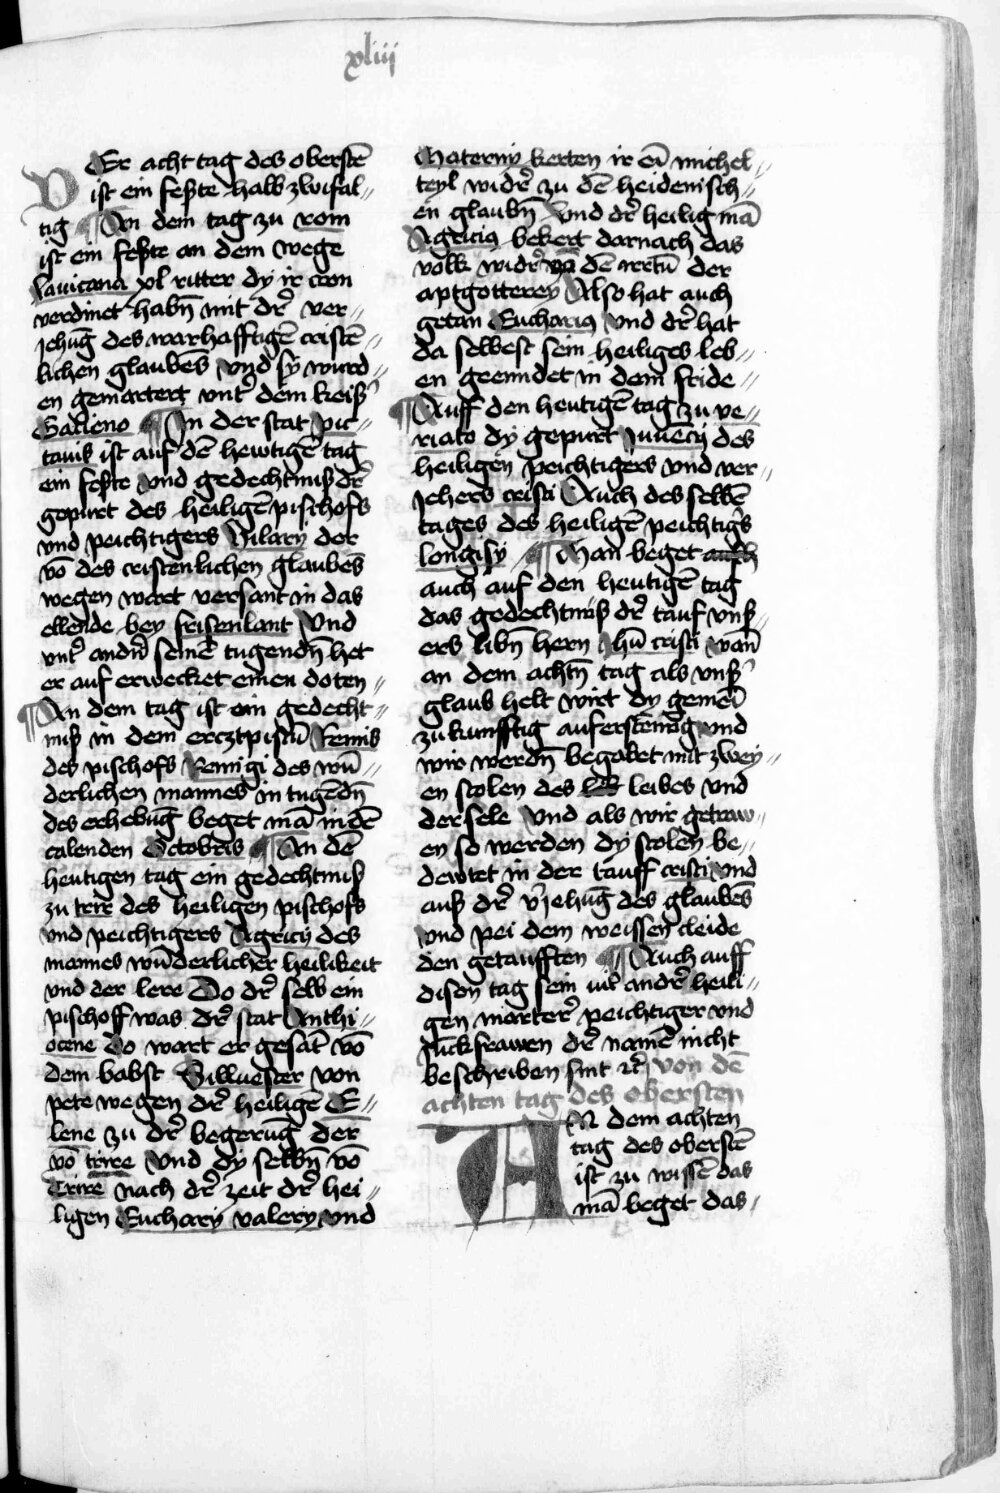 xliij
DEr acht tag des oberstē
ist ein feste halb zwifal„
tig ¶ An dem tag zu rom
ist ein feste an dem wege
lauicana xl ritter dy ir cron
verdinet habn̄ mit dr̄ ver„
jehūg des warhafftigē cristē„
lichen glaubēs Vnd sy wurd„
en gemartert vnt᷑ dem keis᷑
Galieno ¶ In der stat pic„
tauis ist auf dē hewtigē tag
ein feste Vnd gedechtnuß dr̄
gepurt des heiligē pischofs
vnd peichtigers Hilarij der
vō des cristenlichen glaubēs
wegen wart versant in das
ellende bey frisenlant Vnd
vnt᷑ andn̄ seinē tugendn̄ het
er auf erwecket einen doten„
¶ An dem tag ist ein gedecht„
nuß in dem ercztpistū Remis
des pischofs Remigi des wū„
derlichen mannes in tugēdn̄
des erhebūg beget mā in dē
calenden Octobris ¶ An dē
heutigen tag ein gedechtnuß
zu trire des heiligen pischofs
vnd peichtigers Agricij des
mannes wūderlicher heilikeit
vnd der lere Do dr̄ selb ein
pischoff was dr̄ stat Anthi„
ocene do wart er gesāt vō
dem babst Silluester von
pete wegen dr̄ heiligē E„
lene zu dr̄ begerūg der
vō trire Vnd dy selbn̄ vō
Trire nach dr̄ zeit dr̄ hei„
ligen Euchary valery vnd
Materny kerten ir eī michel„
teyl widr̄ zu dē heidenisch„
en glaubn̄ Vnd dr̄ heilig mā
Agricius bekert darnach das
volk widr̄ vō dē irrtū der
aptgotterey Also hat auch
getan Eucharius Vnd dr̄ hat
da selbest sein heiliges leb„
en geenndet in dem fride„
¶ Auff den heutigē tag zu ve„
riato dy gepurt Juuēcij des
heiligen peichtigers vnd ver„
jehers cristi Auch des selbē
tages des heiligē peichtig᷑s
longisy ¶ Man beget auch
auch auf den heutigē tag
das gedechtnuß dr̄ tauf vnß„
ers libn̄ hern Jhū cristi Wān
an dem achtn̄ tag als vnß᷑
glaub helt wirt dy gemeī
zukunfftig aufersteūg vnd
wir werdn̄ begabet mit zwey„
en stolen des leibes Vnd
der sele Vnd als wir getraw„
en so werden dy stolen be„
dewtet in der tauff cristi Vnd
auß dr̄ v᷑jehūg des glaubēs
Vnd pei dem weissen cleide
den getaufften ¶ Auch auff
disen tag sein vil andr̄ heili„
gen martr̄er peichtiger vnd
Jūckfrawen dr̄ namē nicht
beschriben sint ꝛc̄ von dē
achten tag des obersten
AN dem achten
tag des oberstē
ist zu wissē das
mā beget das„